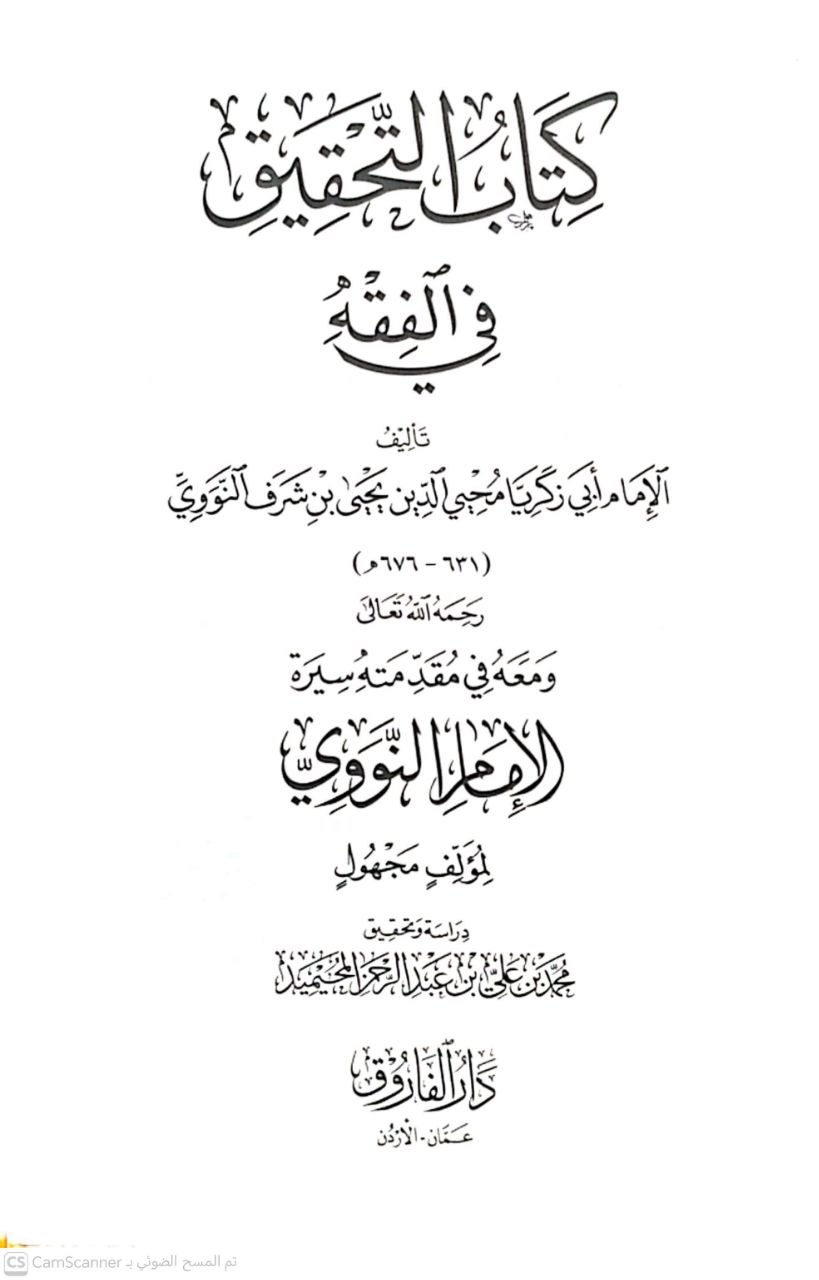 كِتَابُ التَّحْقِيقِ
فِي الفِقْهِ
تَأْلِيْفُ
الإِمَام أَبِي زَكَرِيَّا مُحْيِي الدِّين يَحْيَىٰ بْنِ شَرَف النَّوَوِيِّ
(٦٣١ - ٦٧٦هـ)
رَحِمَهُ اللهُ تَعَالَىٰ
وَمَعَهُ فِي مُقَدِّمَتِهِ سِيَرة
الإِمَامِ النَّوَوِيِّ
لِمُؤَلِّفٍ مَجْهُولٍ
دِرَاسَة وَتَحْقِيْق
مُحَمَّدِ بْنِ عَلِيِّ بْنِ عَبْدِ الرَّحْمَنِ المُحَيْمِيد
دَارُ الفَارُوقِ
عَمَّان - الأُرْدُن
CS CamScanner تم المسح الضوئي بـ